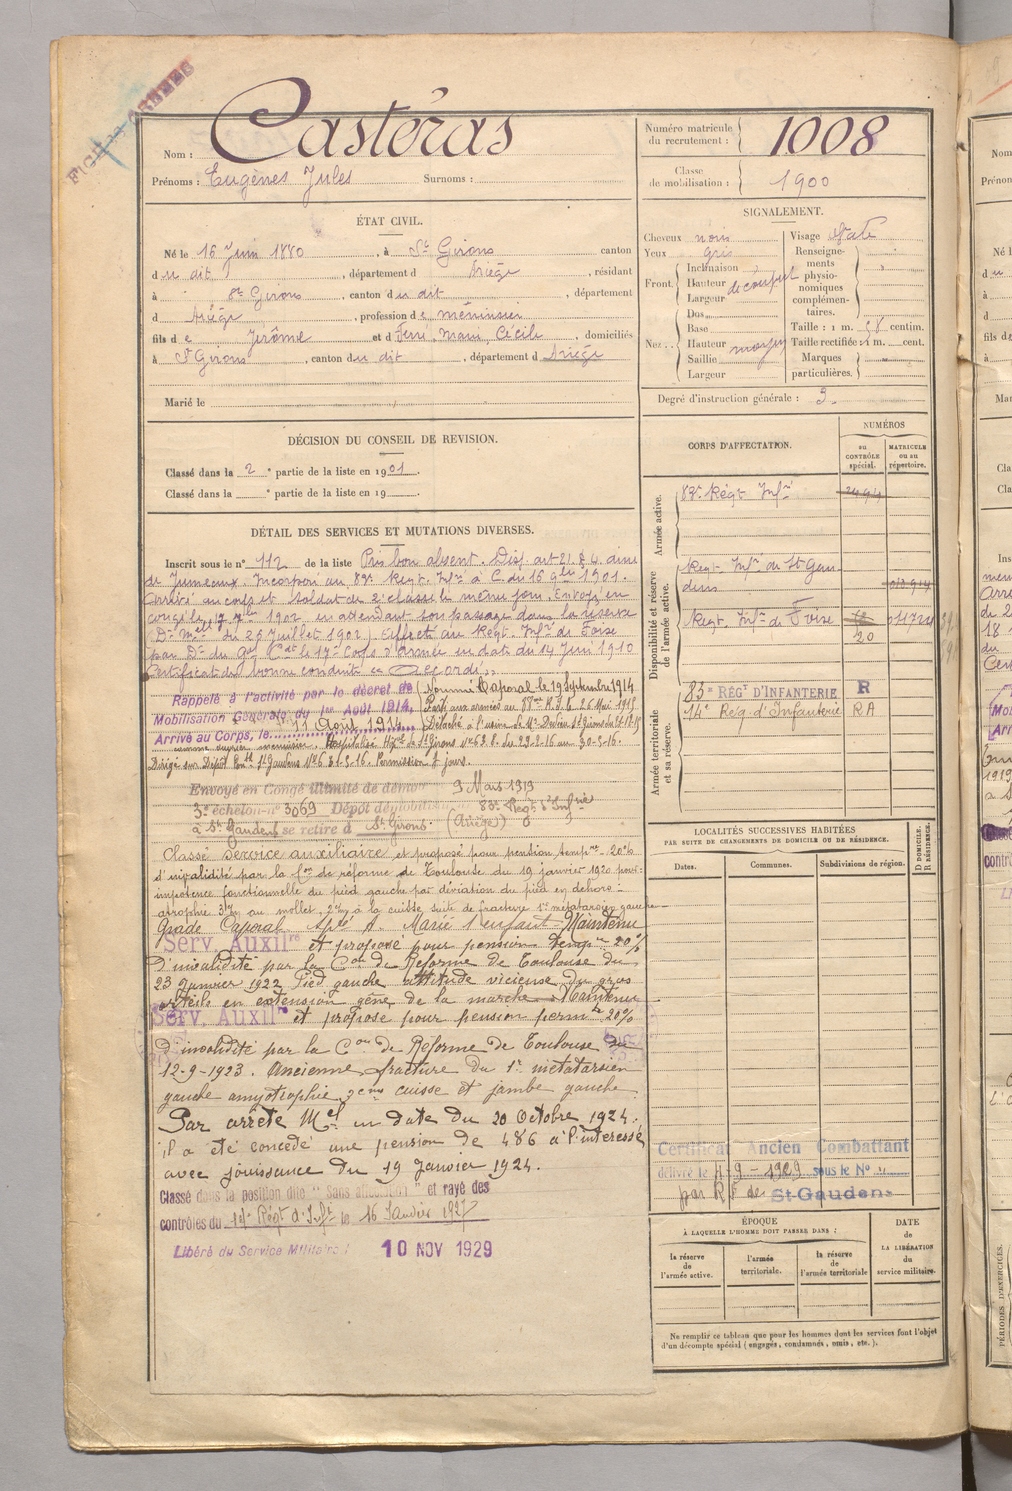 Castéras
Nom :
Prénoms : Eugènes Jules Surnoms :
Numéro matricule du recrutement : 1008
Classe de mobilisation : 1900
ÉTAT CIVIL.
Né le 16 Juin 1880, à St Girons canton
du dit, département d Ariège, résidant
à St Girons, canton du dit, département
d Ariège, profession de menuisier
fils de Jérôme et d Ferré, Marie, Cécile, domiciliés
à St Girons, canton du dit, département d Ariège
Marié le
SIGNALEMENT.
Cheveux noirs
Yeux gris
Front. Inclinaison
Hauteur découvert
Largeur
Nez.. Dos
Base
Hauteur moyen
Saillie
Largeur
Visage ovale
Renseignements physionomiques complémentaires.
Taille : 1 m. 58 centim.
Taille rectifiée : 1 m. cent.
Marques particulières.
Degré d'instruction générale : 3.
DÉCISION DU CONSEIL DE REVISION.
Classé dans la 2e partie de la liste en 1901.
Classé dans la e partie de la liste en 19
DÉTAIL DES SERVICES ET MUTATIONS DIVERSES.
Inscrit sous le n° 112 de la liste Pris bon absent. Disp. art 21. § 4. aîné
de Jumeaux. Incorporé au 83e Regt. Infie à C. du 16 9bre 1901.
Arrivé au corps et soldat de 2e classe le même jour. Envoyé en
congé le 1902 en attendant son passage dans la réserve
Dn Mlle du 25 Juillet 1902). Affecté au Régt. Infie de Foix
par Dn du Gal Ct le 17e Corps d'Armée en date du 14 Juin 1910
Certificat de bonne conduite "Accordé"
Rappelé à l'activité par le décret de
Mobilisation Générale du 1er Août 1914.
Arrivé au Corps, le 11 Août 1914
Nommé Caporal le 19 Septembre 1914
Parti aux armées au R.I. le 26 Mai 1915
Détaché à l'usine de Mr
comme ouvrier menuisier. Hospitalisé Hôpal de St Girons N° 63 B. du 29-2-16 au 30-5-16.
Dirigé sur Dépôt St Gaudens 31-5-16. Permission 7 jours.
Envoyé en Congé illimité de démob 9 Mars 1919
3e échelon n° 3069 Dépôt démobilisateur 83e Regt d'Infrie
à St Gaudens se retire à St Girons (Ariège)
Classé Service auxiliaire et proposé pour pension tempre 20%
d'invalidité par la Con de réforme de Toulouse du 19 janvier 1920 pour :
impotence fonctionnelle du pied gauche par déviation du pied en dehors :
atrophie 3 c/m au mollet, 2 c/m à la cuisse suite de fracture 1er métatarsien gauche
Grade Caporal. Marié 1 enfant Maintenu
Serv. Auxilre et proposé pour pension tempre 20%
d'invalidité par la Con de Réforme de Toulouse du
23 Janvier 1922 Pied gauche attitude vicieuse du gros
orteils en extension gêne de la marche. Maintenu
Serv. Auxilre et proposé pour pension permte 20%
d'invalidité par la Con de Réforme de Toulouse du
12-9-1923. Ancienne fracture du 1er métatarsien
gauche amyotrophie 2 cms cuisse et jambe gauche
Par arrêté Mel en date du 20 Octobre 1924 :
il a été concédé une pension de 486 à l'intéressé
avec jouissance du 19 Janvier 1924.
Classé dans la position dite "Sans affectation" et rayé des
contrôles du 14e Régt d'Inft le 16 Janvier 1927
Libéré du Service Militaire 10 NOV 1929
CORPS D'AFFECTATION.
NUMÉROS
au CONTRÔLE spécial.
MATRICULE ou au répertoire.
Armée active.
83e Régt Infie
Disponibilité et réserve de l'armée active.
Regt Infie de St Gaudens
Regt. Infie de Foix
20
Armée territoriale et sa réserve.
83e RÉGt D'INFANTERIE R
14e Rég. d'Infanterie RA
LOCALITÉS SUCCESSIVES HABITÉES
PAR SUITE DE CHANGEMENTS DE DOMICILE OU DE RÉSIDENCE.
Dates. Communes. Subdivisions de région. D DOMICILE. R RÉSIDENCE.
Certificat Ancien Combattant
délivré le 4-9-1929 sous le N° "
par R.F. de St-Gaudens
ÉPOQUE
À LAQUELLE L'HOMME DOIT PASSER DANS :
la réserve de l'armée active.
l'armée territoriale.
la réserve de l'armée territoriale
DATE de LA LIBÉRATION du service militaire.
Ne remplir ce tableau que pour les hommes dont les services font l'objet
d'un décompte spécial (engagés, condamnés, omis, etc.).